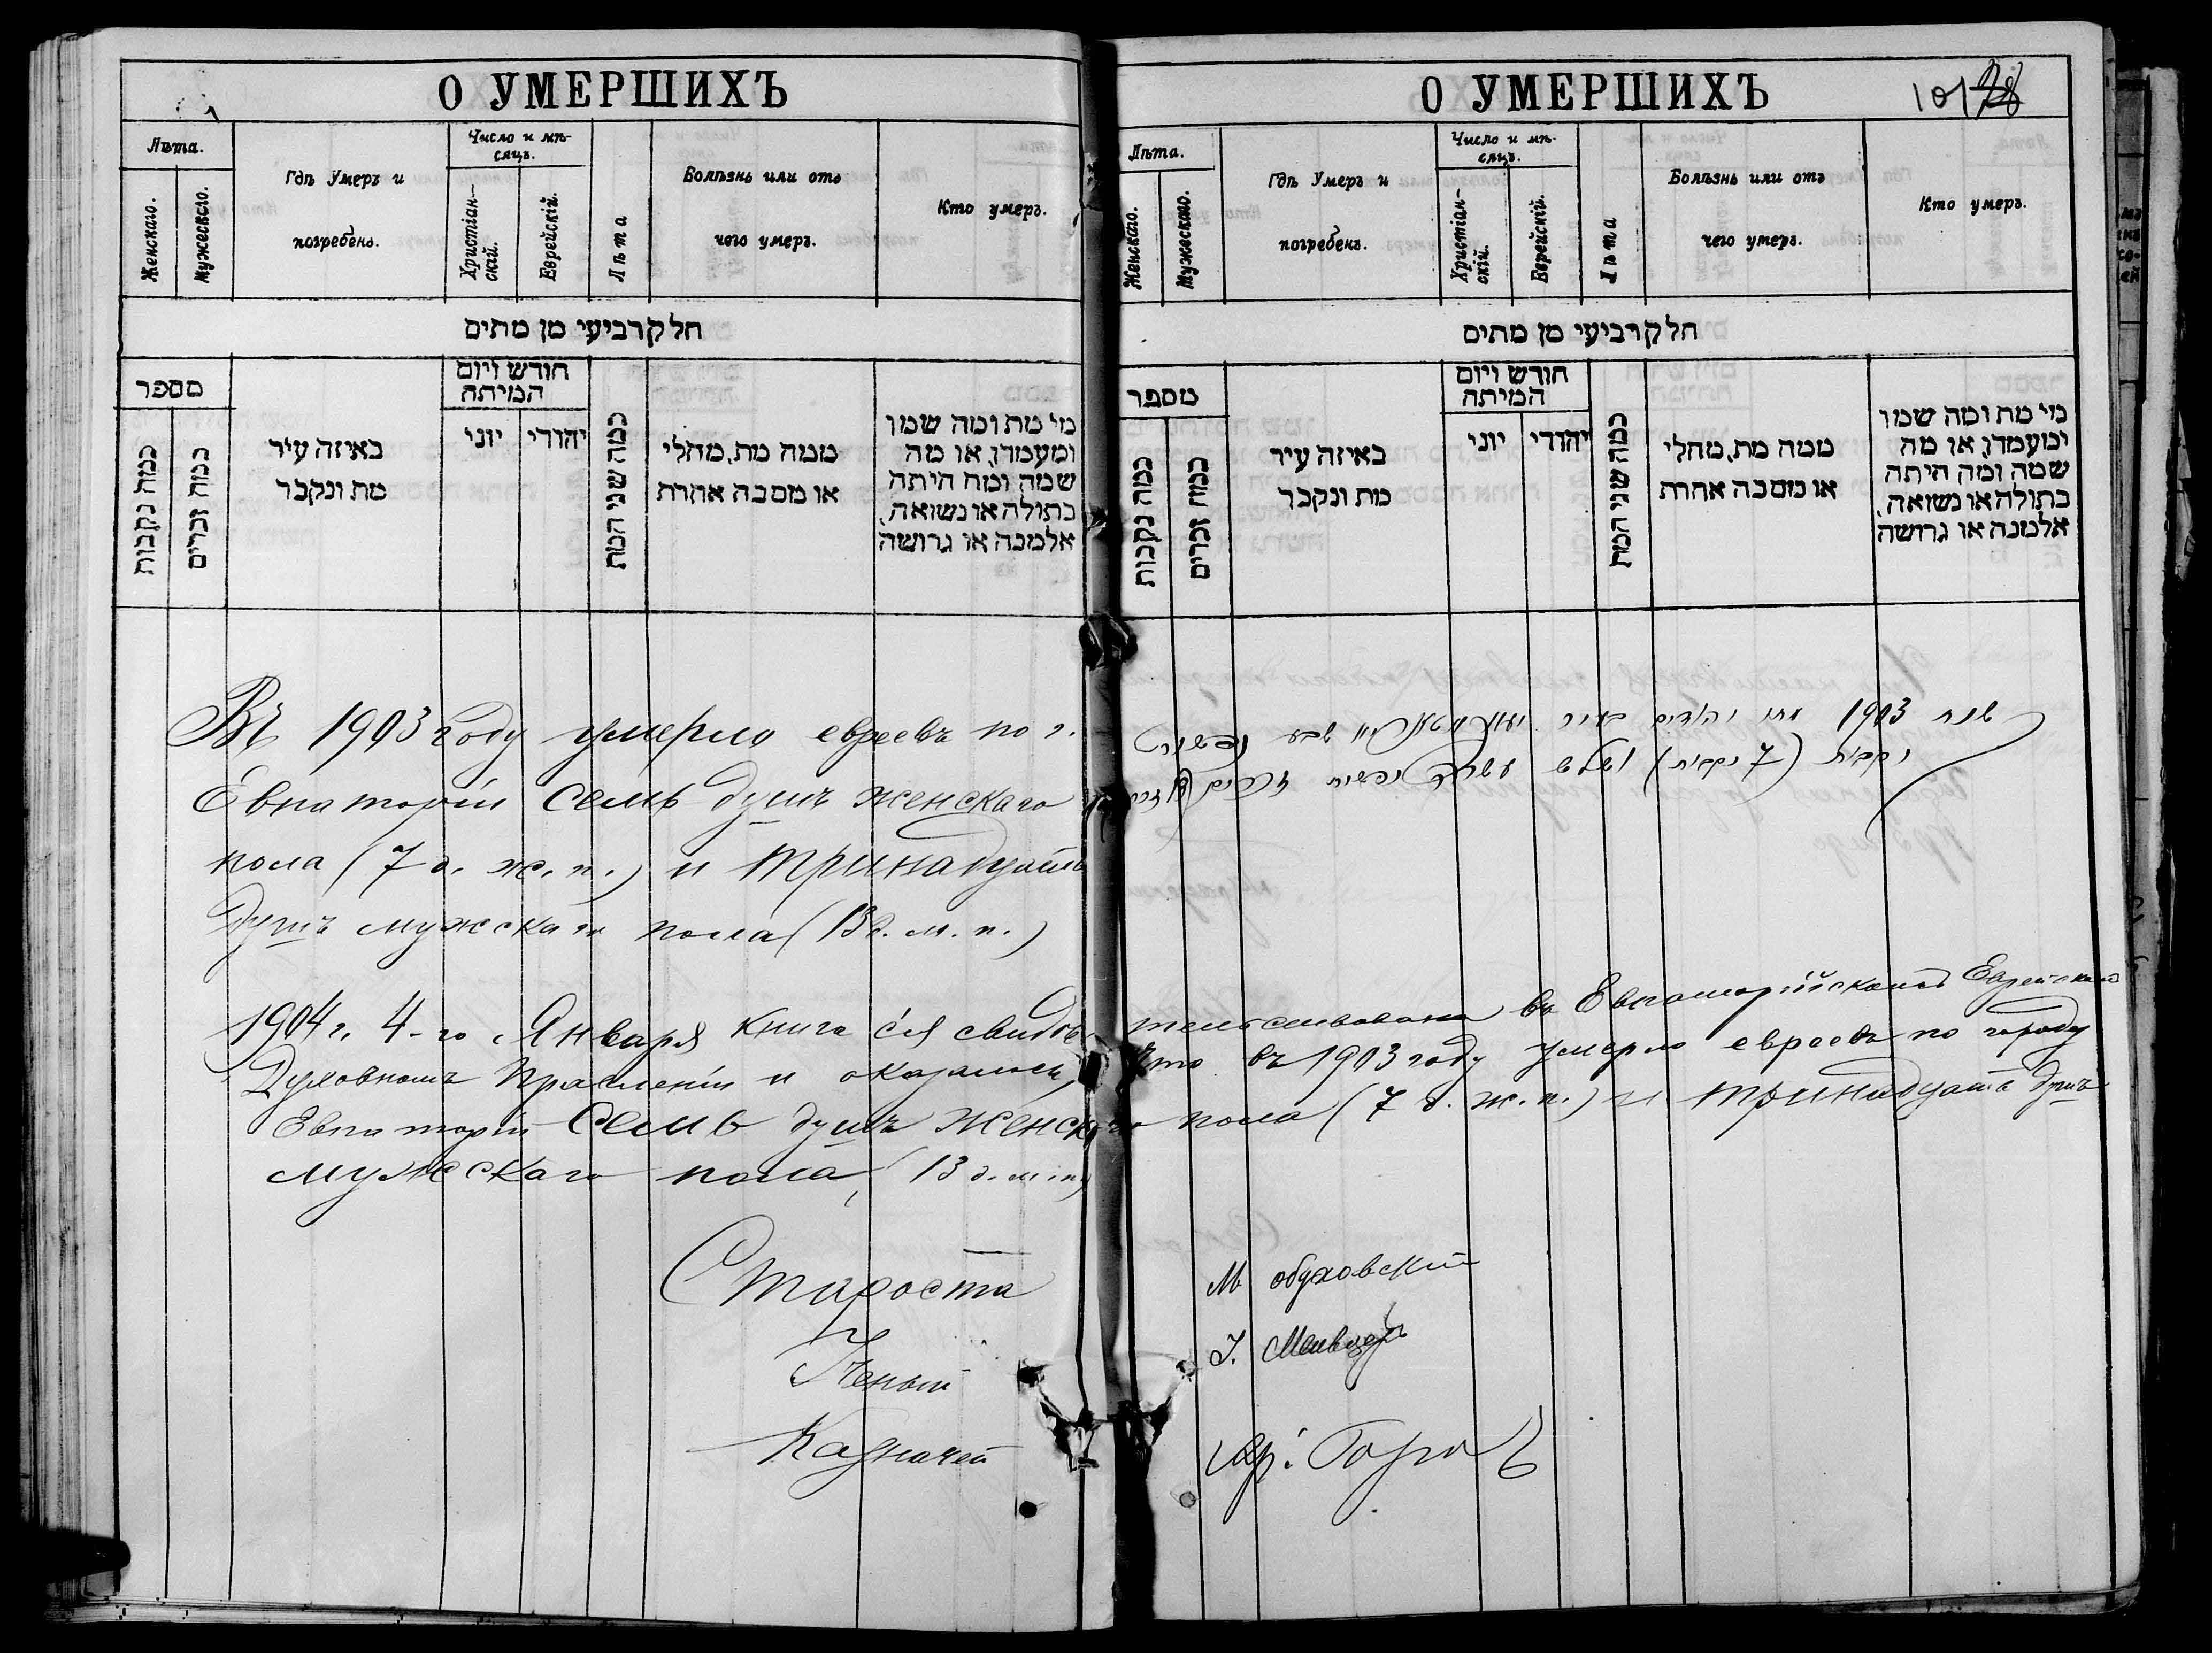 О УМЕРШИХЪ
Лѣта.
Женскаго.
Мужескаго.
Гдѣ Умеръ и
погребенъ.
Число и мѣ-
сяцъ.
Христіан-
скій.
Еврейскій.
Лѣта
Болѣзнь или отъ
чего умеръ.
Кто умеръ.
חלק רביעי מן מתים
מספר
כמה נקבות
כמה זכרים
באיזה עיר
מת ונקבר
חודש ויום
המיתה
יוני
יהודי
כמה שני המת
ממה מת, מחלי
או מסבה אחרת
מי מת ומה שמו
ומעמדו, או מה
שמה ומה היתה
בתולה או נשואה,
אלמנה או גרושה
Въ 1903 году умерло евреевъ по г.
Евпаторіи семь душъ женскаго
пола (7 д. ж. п.) и тринадцать
душъ мужскаго пола (13 д. м. п.)
О УМЕРШИХЪ
101
Лѣта.
Женскаго.
Мужескаго.
Гдѣ Умеръ и
погребенъ.
Число и мѣ-
сяцъ.
Христіан-
скій.
Еврейскій.
Лѣта
Болѣзнь или отъ
чего умеръ.
Кто умеръ.
חלק רביעי מן מתים
מספר
כמה נקבות
כמה זכרים
באיזה עיר
מת ונקבר
חודש ויום
המיתה
יוני
יהודי
כמה שני המת
ממה מת, מחלי
או מסבה אחרת
מי מת ומה שמו
ומעמדו, או מה
שמה ומה היתה
בתולה או נשואה,
אלמנה או גרושה
שנת 1903 מתו יהודים בעיר שבע נפשות
נקבות (7 נקבות) ושלש עשרה נפשות זכרים
1904 г. 4-го Января книга сія свидѣтельствована въ Евпаторійскомъ Еврейскомъ
Духовномъ Правленіи и оказалось, что въ 1903 году умерло евреевъ по городу
Евпаторіи семь душъ женскаго пола (7 д. ж. п.) и тринадцать душъ
мужскаго пола (13 д. м. п.)
Староста М обуховскій
Ученый І.
Казначей